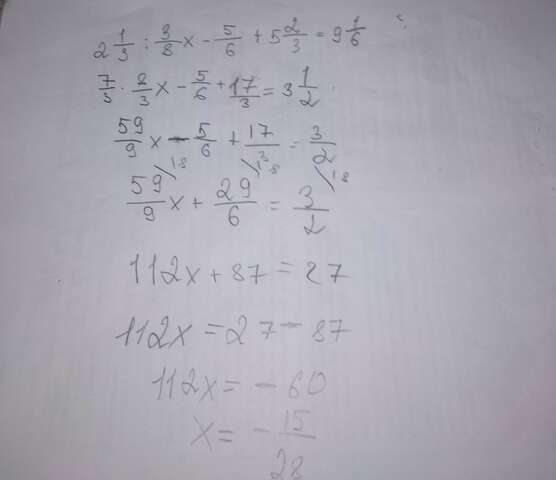 2 1/3 : 3/8 x - 5/6 + 5 2/3 = 9 1/6
7/3 · 8/3 x - 5/6 + 17/3 = 3 1/2
59/9 x - 5/6 + 17/3 = 3/2
18 18 18
59/9 x + 29/6 = 3/2
112x + 87 = 27
112x = 27 - 87
112x = - 60
x = - 15/28